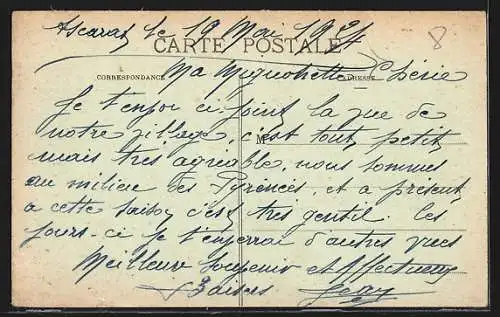 Ascarat le 19 Mai 1934
CARTE POSTALE
Ma Mignonette Chérie
CORRESPONDANCE
ADRESSE
Je t'envoi ci-joint la vue de
notre village, c'est tout petit
M
mais très agréable, nous sommes
au milieu des Pyrénées, et a présent
a cette saison c'est très gentil. Ces
jours-ci je t'enverrai d'autres vues
Meilleur Souvenir et Affectueux
Baisers
8